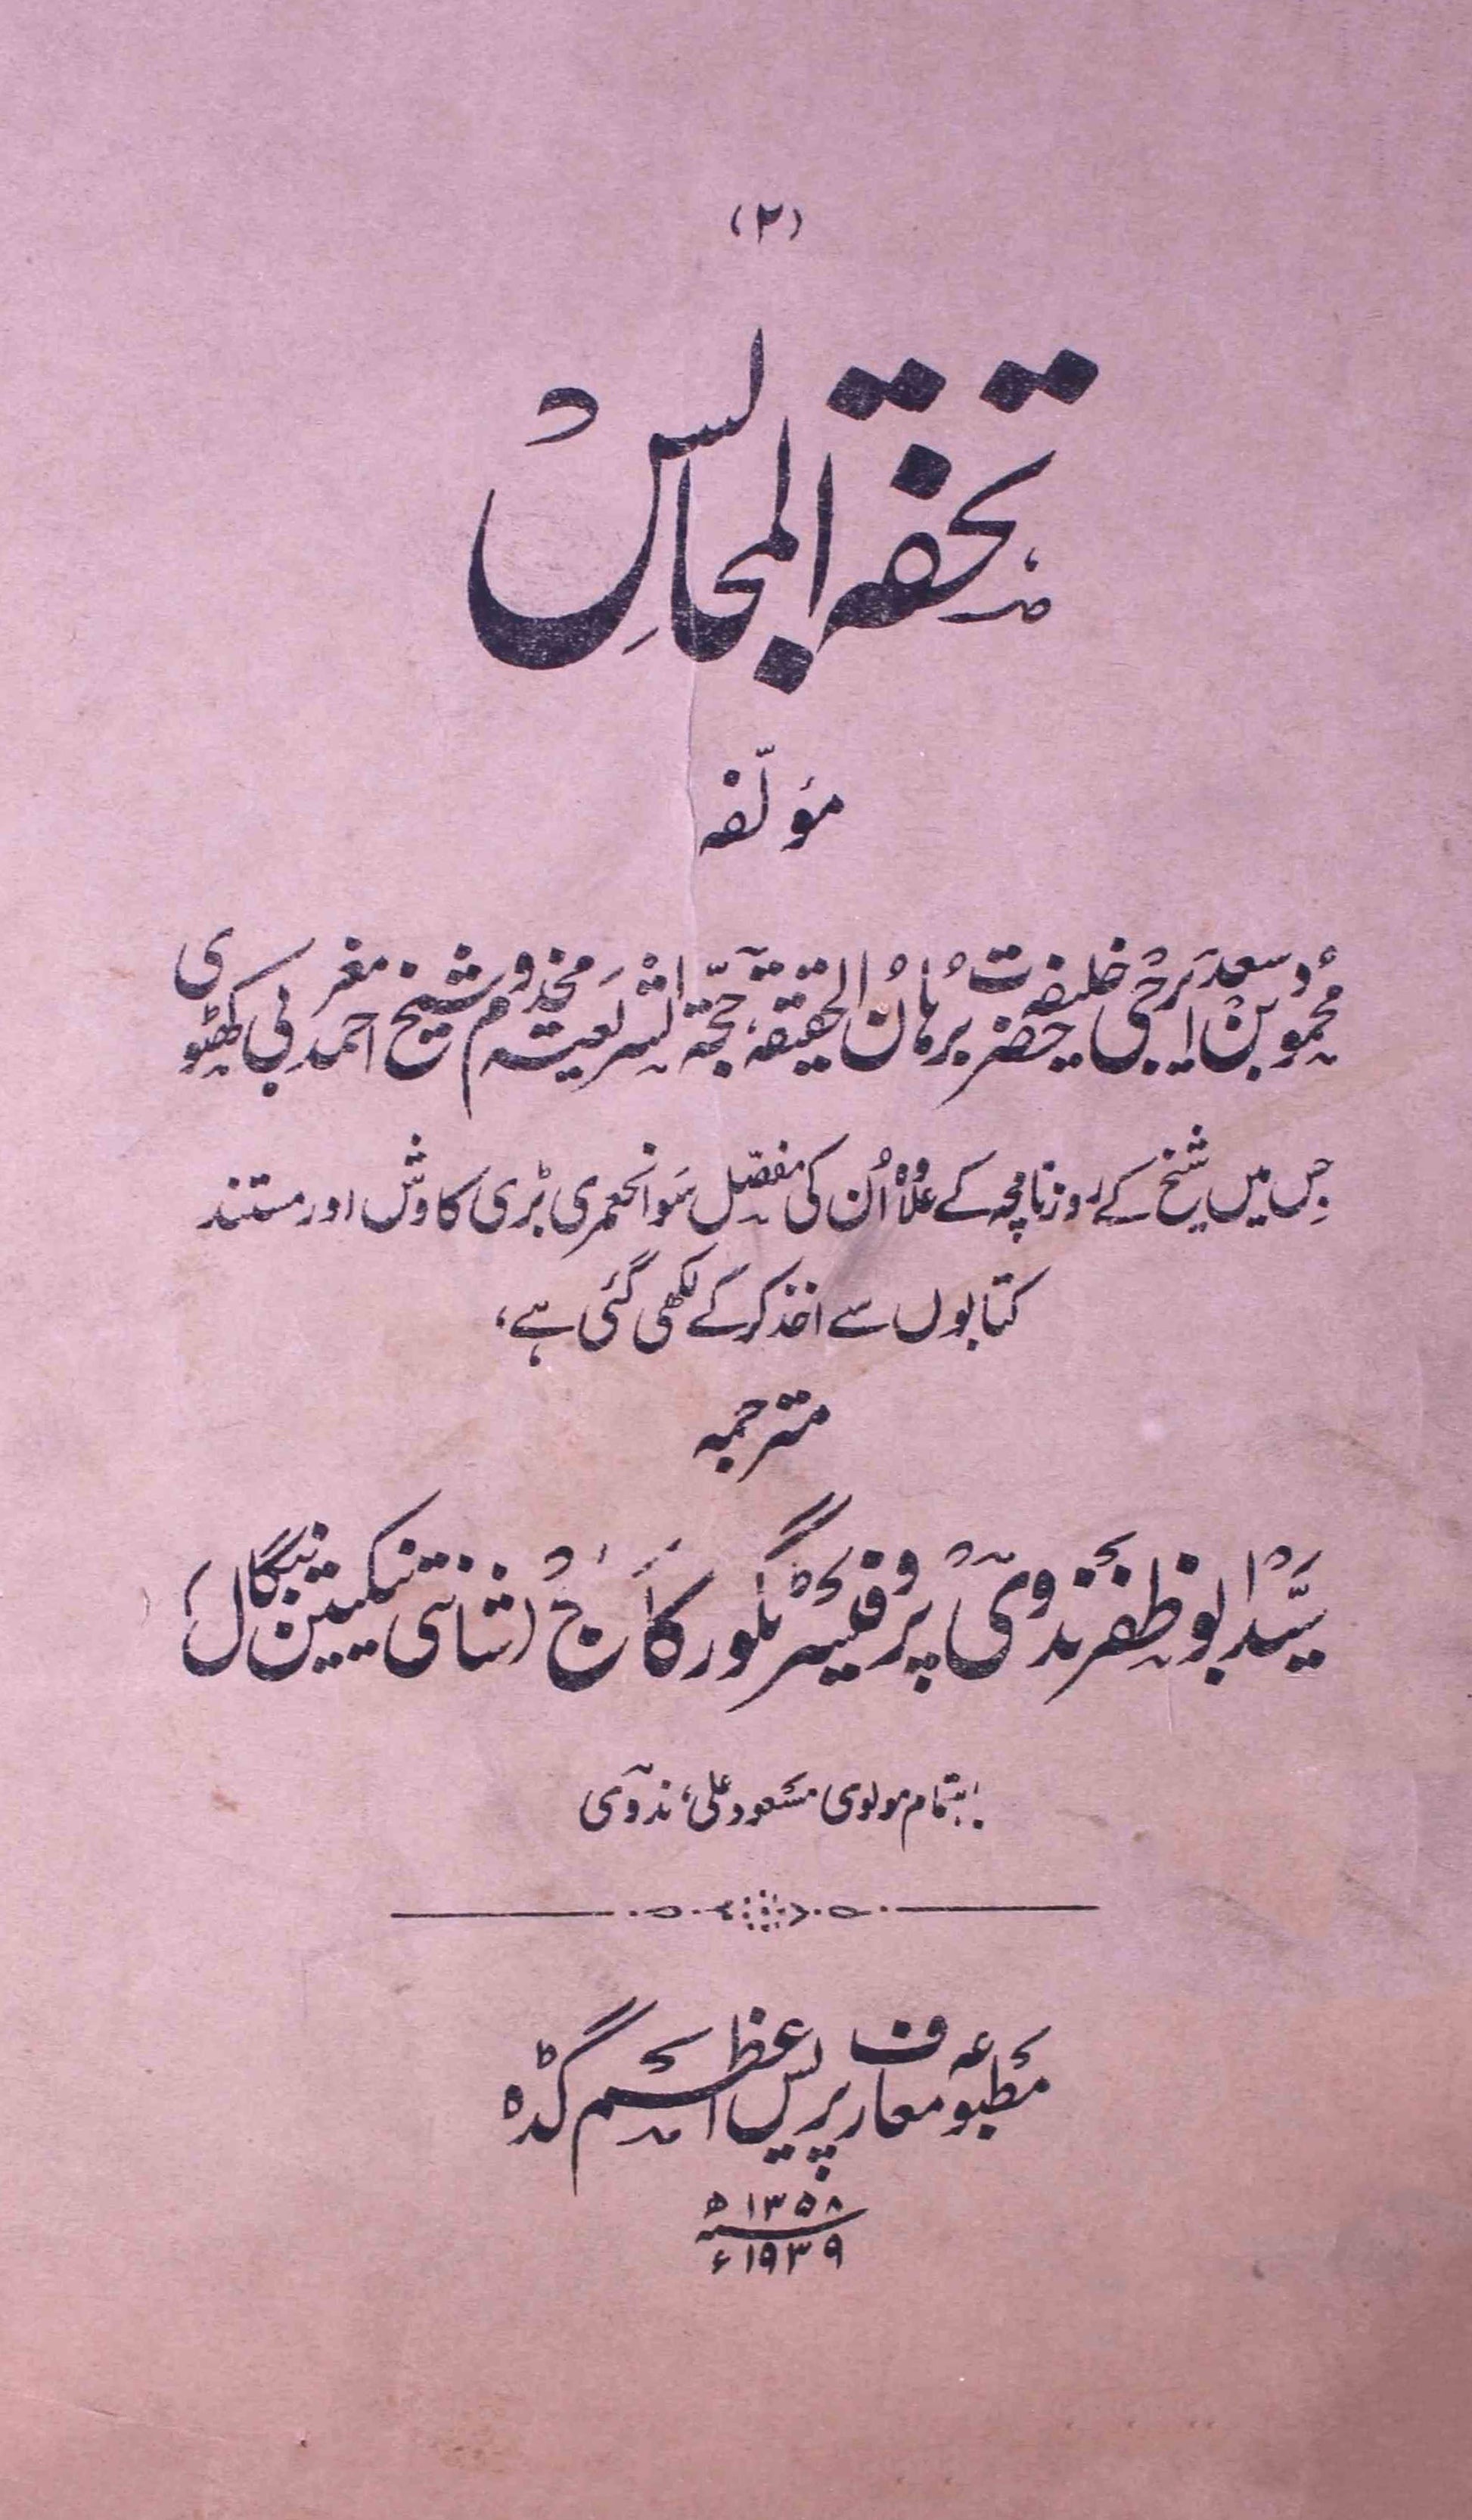 (۲)
تحفۃ المجالس
مؤلّفہ
محمود بن سعد ایرجی خلیفہ حضرت برہان الحقیقۃ، حجّۃ الشریعۃ مخدوم شیخ احمد مغربی کھٹوی
جس میں شیخ کے روزنامچہ کے علاوہ اُن کی مفصّل سوانحعمری بڑی کاوش اور مستند
کتابوں سے اخذ کر کے لکھی گئی ہے،
مترجمہ
سیّد ابو ظفر ندوی پروفیسر ٹگور کالج (شانتی نکیتن بنگال)
باہتمام مولوی مسعود علی، ندوی
مطبوعہ معارف پریس اعظم گڈہ
۱۳۵۸ھ
۱۹۳۹ء